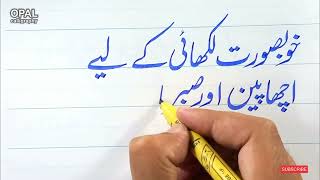 OPAL
calligraphy
خوبصورت لکھائی کے لیے
اچھا پین اور صبر
SUBSCRIBE